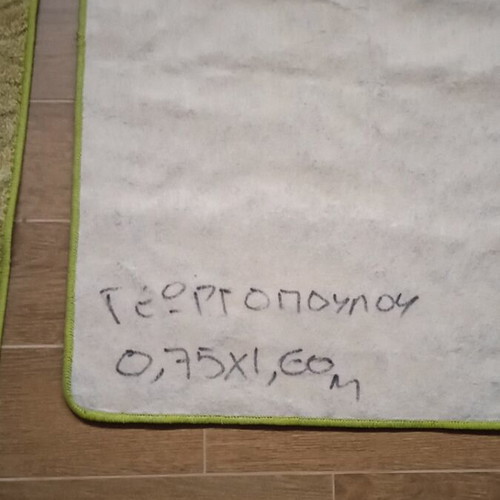 ΓΕΩΡΓΟΠΟΥΛΟΥ
0,75X1,60 M